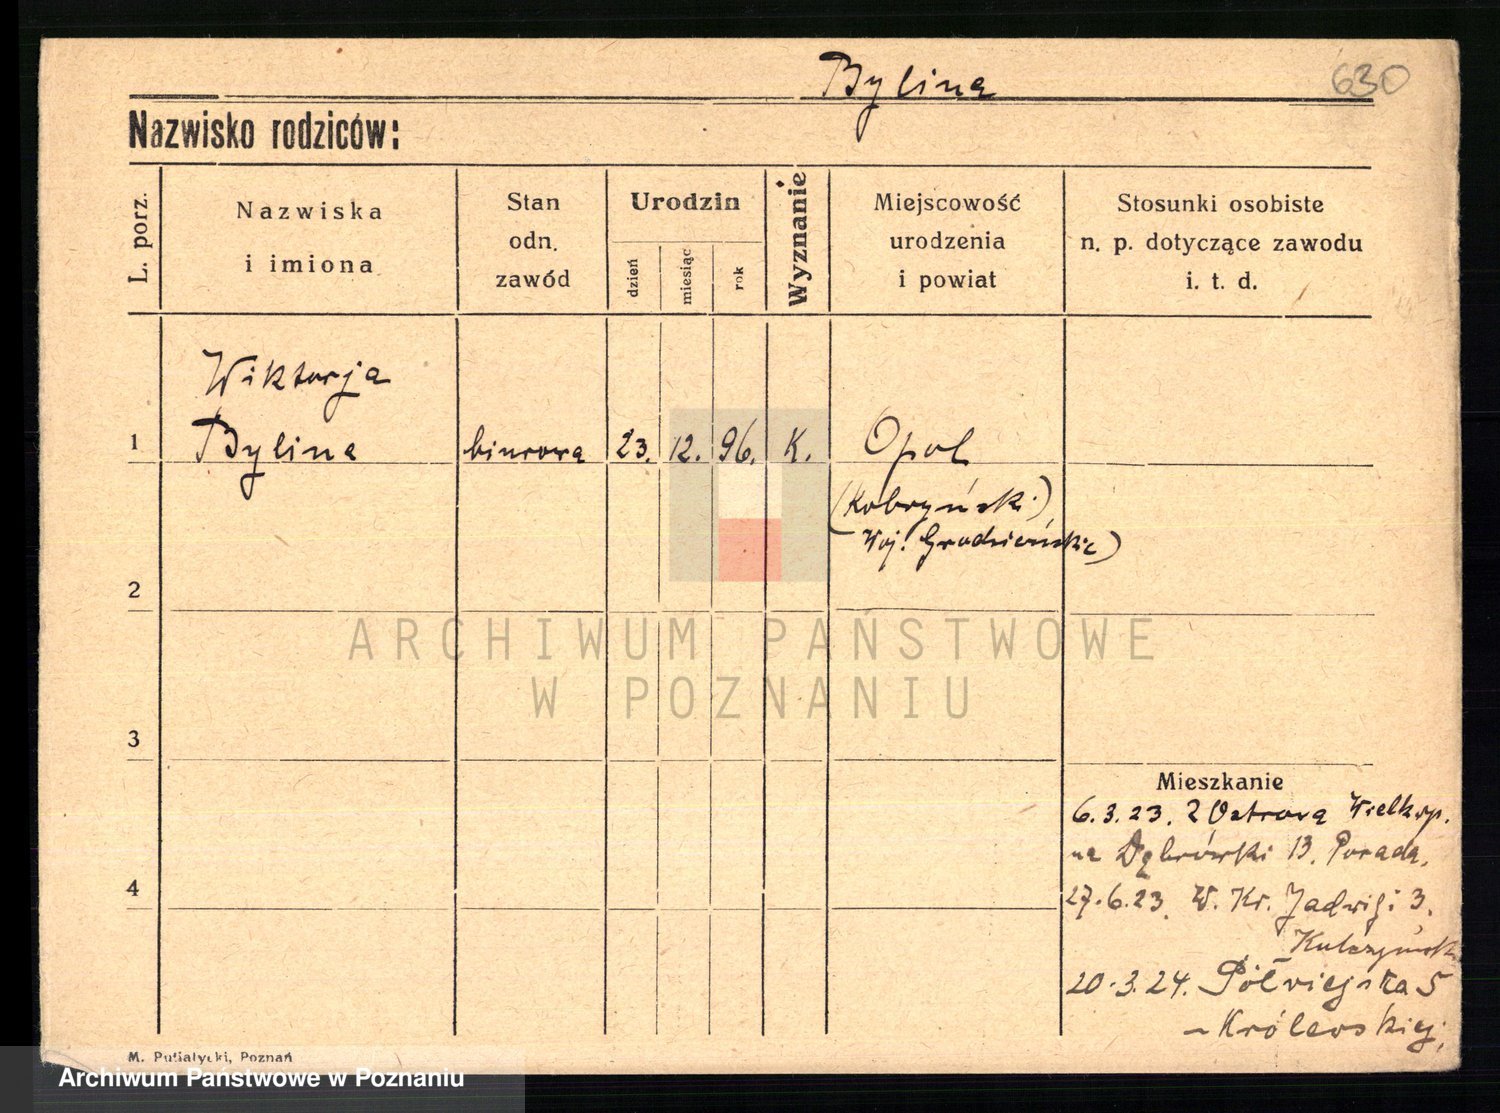 Bylina
630
Nazwisko rodziców:
L. porz.
Nazwiska
i imiona
Stan
odn.
zawód
Urodzin
dzień
miesiąc
rok
Wyznanie
Miejscowość
urodzenia
i powiat
Stosunki osobiste
n. p. dotyczące zawodu
i. t. d.
Wiktorja
1 Bylina biurowa 23. 12. 96. K. Opol
(Kobryński)
Woj. Grodzieńskie)
2
ARCHIWUM PAŃSTWOWE
W POZNANIU
3
Mieszkanie
6.3.23. Z Ostrowa Wielkop.
na Dąbrówski 13. Porada.
4
27.6.23. W. Kr. Jadwigi 3.
20.3.24. Półwiejska 5
Królewskiej.
M. Putiatycki, Poznań
Archiwum Państwowe w Poznaniu